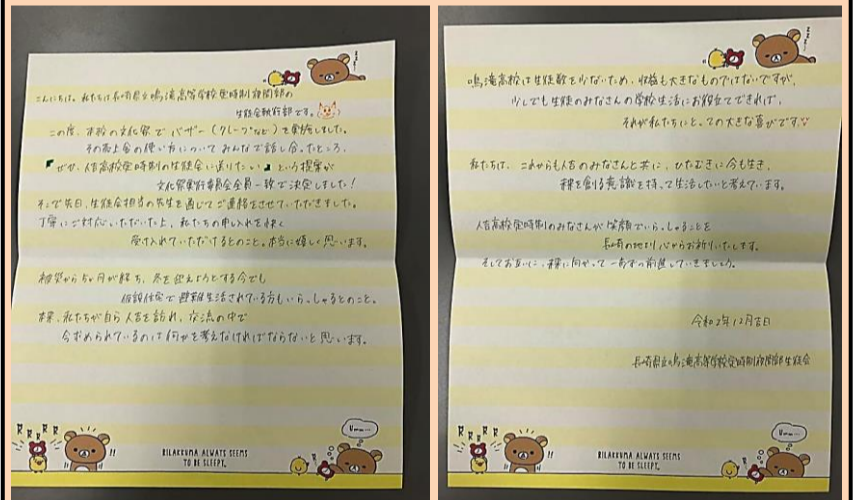 こんにちは。私たちは長崎県立鳴滝高等学校定時制夜間部の
生徒会執行部です。
この度、本校の文化祭で バザー(クレープなど)を実施しました。
その売上金の使い方について みんなで話し合ったところ、
『ぜひ、人吉高校定時制の生徒会に送りたい』という提案が
文化祭実行委員会全員一致で決定しました!
そこで先日、生徒会担当の先生を通じてご連絡をさせていただきました。
丁寧にご対応いただいた上、私たちの申し入れを快く
受け入れていただけるとのこと。本当に嬉しく思います。
被災から5ヶ月が経ち、冬を迎えようとする今でも
仮設住宅で避難生活されている方もいらっしゃるとのこと。
本来、私たちが自ら人吉を訪れ、交流の中で
今求められているのは何かを考えなければならないと思います。
RILAKKUMA ALWAYS SEEMS
TO BE SLEEPY.
Umm...
zzz...
鳴滝高校は生徒数も少ないため、収益も大きなものではないですが、
少しでも生徒のみなさんの学校生活にお役立てできれば、
それが私たちにとっての大きな喜びです。
私たちは、これからも人吉のみなさんと共に、ひたむきに今を生き、
未来を創る意識を持って生活したいと考えています。
人吉高校定時制のみなさんが笑顔でいらっしゃることを
長崎の地より心からお祈りいたします。
そしてお互いに、未来に向かって一歩ずつ前進していきましょう。
令和2年12月吉日
長崎県立鳴滝高等学校定時制夜間部生徒会
RILAKKUMA ALWAYS SEEMS
TO BE SLEEPY.
Umm...